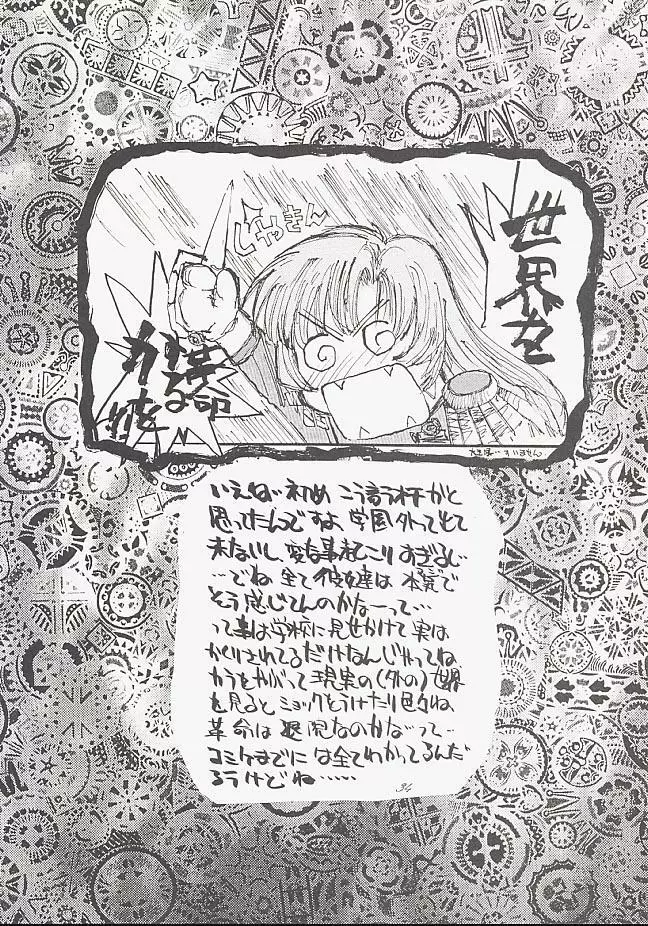 世界を
じゃきん
革命
する
力を
すいません
いえね 初め こう言う
思ってたんですよ 学園外って出て
来ないし 変な事起こりすぎるし…
…でね 全て彼女達は 本気で
そう感じてんのかなーって…
って事は学校に見せかけて実は
かくりされてるだけなんじゃってね
現実の(外の)世界
を見ると ショックをうけたり色々ね、
革命は 退院なのかなって…
コミケまでには全てわかってるんだ
ろうけどね……
34